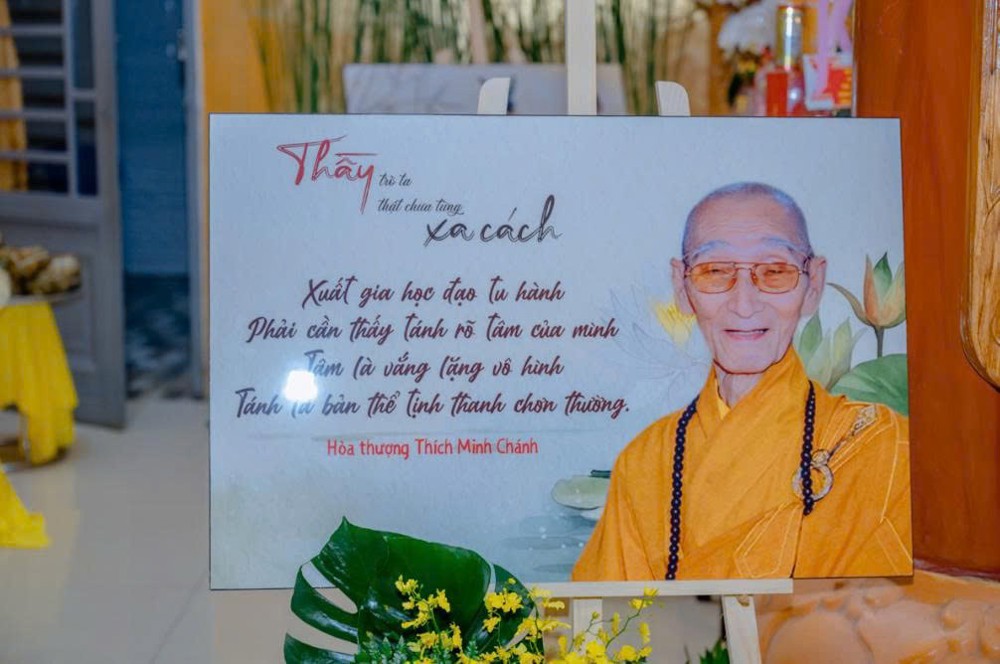 Thầy trò ta
thật chưa từng
xa cách
Xuất gia học đạo tu hành
Phải cần thấy tánh rõ tâm của mình
Tâm là vắng lặng vô hình
Tánh là bản thể tịnh thanh chơn thường.
Hòa thượng Thích Minh Chánh